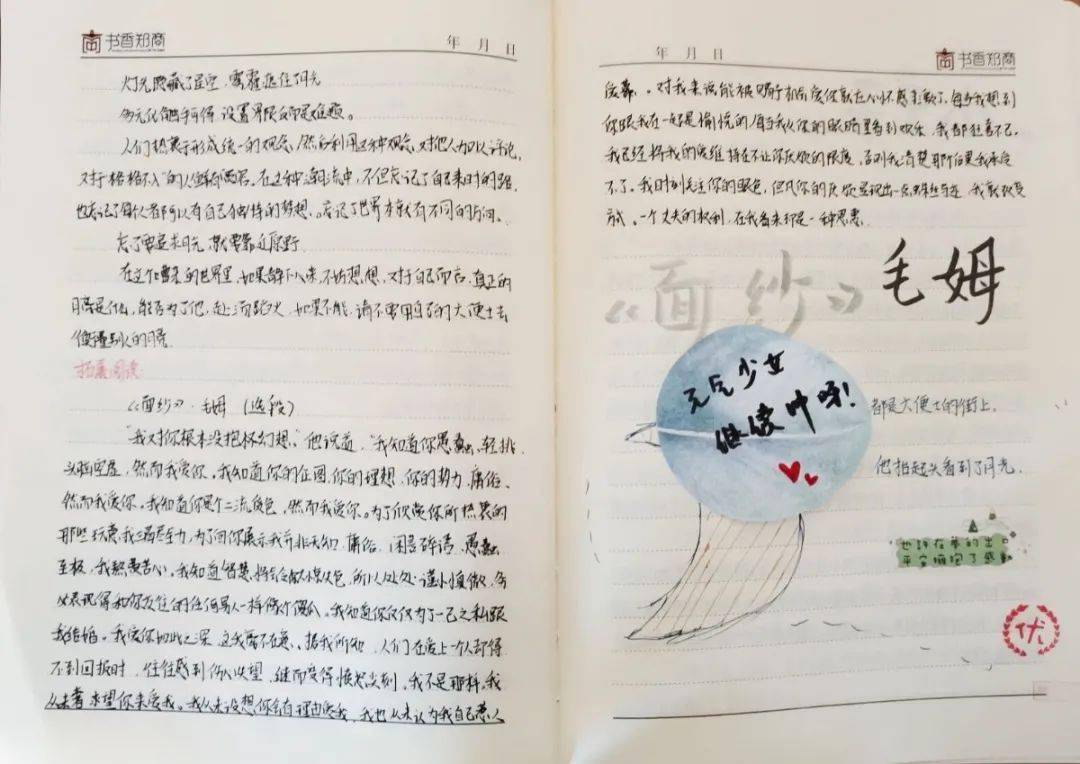 书香郑商
年 月 日
灯光隐藏了星空，雾霾遮住阳光
多元化触手可得，设置界限却是难题。
人们热衷于形成统一的观念，然后利用这种观念，对他人加以评论，
对于"格格不入"的人 。在这种逆流中，不但忘记了自己来时的路，
也忘记了每个人都可以有自己独特的梦想。忘记了世界本就有不同的方向。
忘了要追求月光，就要靠近原野
在这个 的世界里，如果静下心来，不妨想想，对于自己而言，真正的
月亮是什么，能否为了他，赴汤蹈火，如果不能，请不要用自己的六便士去
别人的月亮
拓展阅读
《面纱》·毛姆（选段）
"我对你根本没抱怀幻想，"他说道，"我知道你愚蠢、轻挑、
头脑空虚，然而我爱你。我知道你的企图、你的理想，你的势力、庸俗、
然而我爱你。我知道你是个二流货色，然而我爱你。为了欣赏你所热衷的
那些玩意，我竭尽全力，为了向你展示我并非无知、庸俗、闲言碎语、愚蠢
至极，我煞费苦心。我知道智慧将会令你大惊失色，所以处处谨小慎微，务
必表现得和你交往的任何男人一样像个傻瓜。我知道你仅仅为了一己之私跟
我结婚。我爱你如此之深，这我毫不在意。据我所知，人们在爱上一个人却得
不到回报时，往往感到伤心失望，继而变得愤怒尖刻。我不是那样。我
从未奢望你来爱我。我从未设想你会有理由爱我，我也从未认为我自己惹人
年 月 日
书香郑商
爱慕。对我来说能被赐予机会爱你就应心怀感激了，每当我想到
你跟我在一起是愉悦的，每当我从你的眼睛里看到欢乐，我都狂喜不已。
我已经将我的爱维持在不让你厌烦的限度，否则我清楚那个后果我承受
不了。我时刻关注你的脸色，但凡你的厌烦显现出一点蛛丝马迹，我就改变
方式。一个丈夫的权利，在我看来却是一种恩惠
《面纱》毛姆
元气少女
继续 呀！
都是六便士的街上，
他抬起头看到了月光。
平 拥抱了感动
优